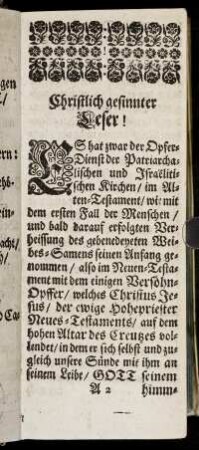 gen
t/
ern:
ehö-
ein-
acht/
h/
d Ca-
Christlich gesinnter
Leser!
ES hat zwar der Opfer-
Dienst der Patriarcha-
lischen und Israeliti-
schen Kirchen/ im Al-
ten-Testament/ wie mit
dem ersten Fall der Menschen/
und bald darauf erfolgten Ver-
heissung des gebenedeyeten Wei-
bes-Samens seinen Anfang ge-
nommen/ also im Neuen-Testa-
ment mit dem einigen Versöhn-
Opffer/ welches Christus Je-
sus/ der ewige Hohepriester
Neues-Testaments/ auf dem
hohen Altar des Creutzes vol-
lendet/ in dem er sich selbst und zu-
gleich unsere Sünde mit ihm an
seinem Leibe/ GOTT seinem
A 2 himm-